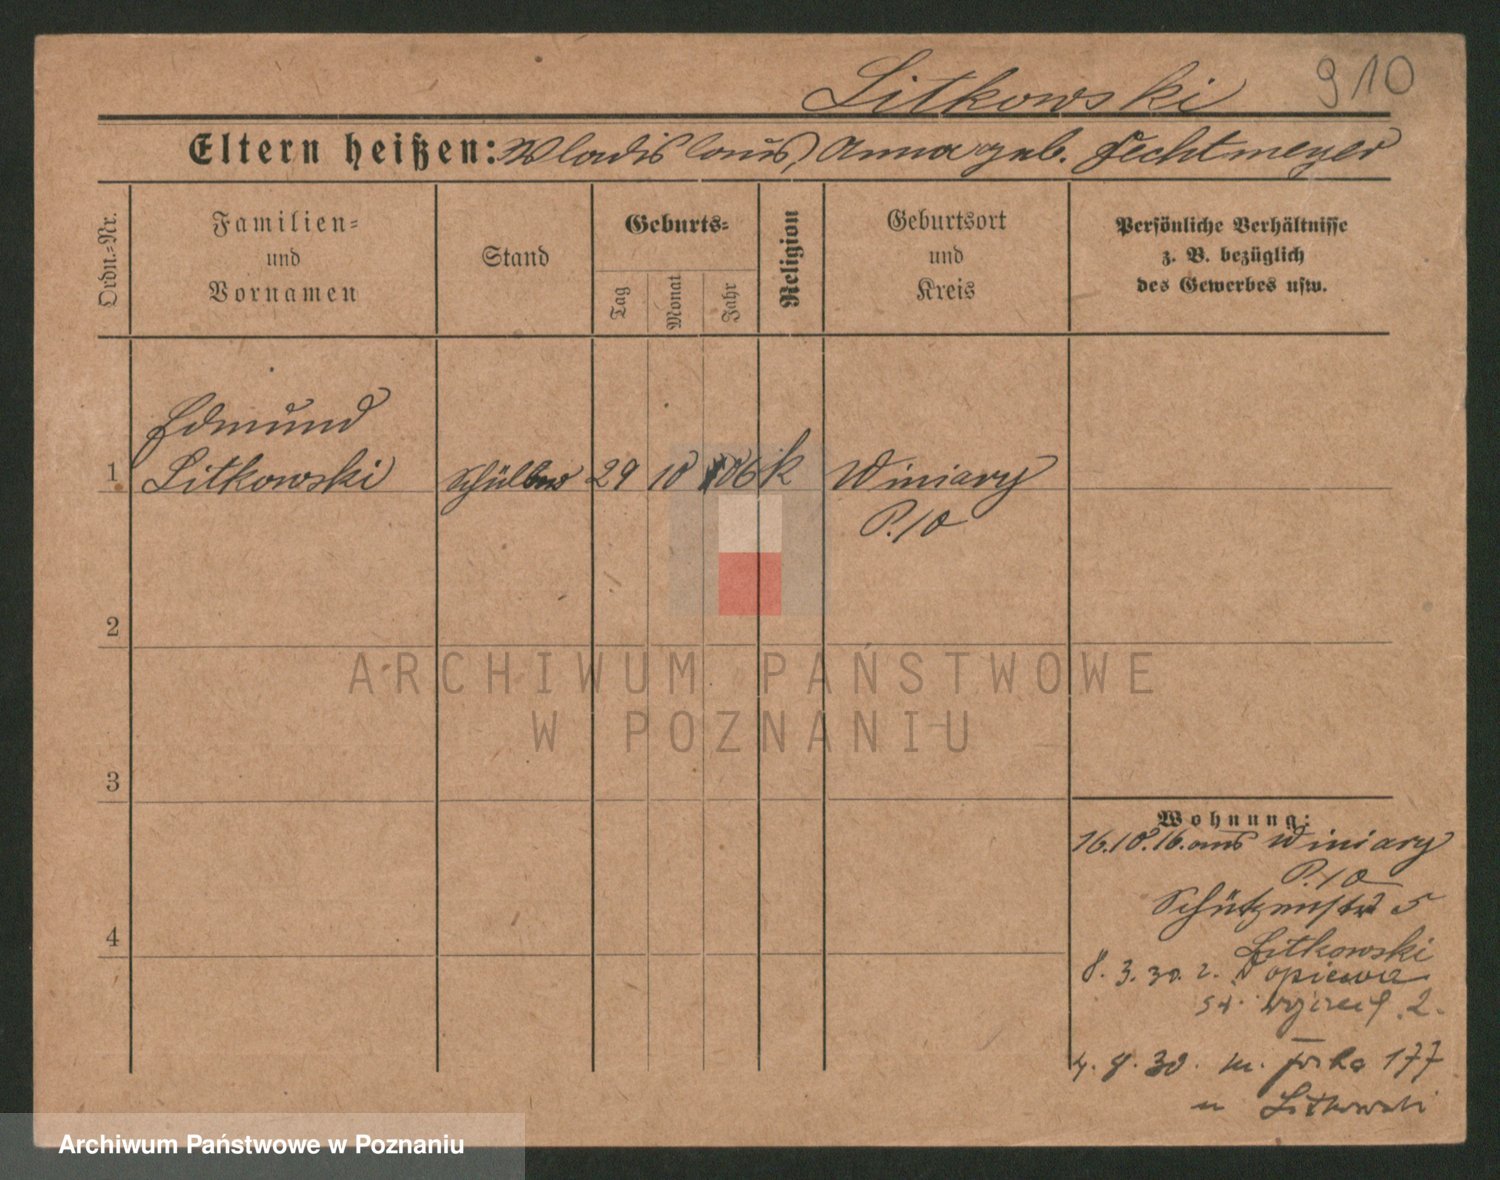 Litkowski 910
Eltern heißen: Wladislaus, Anna geb. Fechtmeyer
Ordn.-Nr.
Familien-
und
Vornamen
Stand
Geburts-
Tag
Monat
Jahr
Religion
Geburtsort
und
Kreis
Persönliche Verhältnisse
z. B. bezüglich
des Gewerbes usw.
Edmund
1 Litkowski Schüler 29 10 06 k Winiary
P. 10
2
3
4
Wohnung:
16.10.16. aus Winiary
P. 10
Schützenstr 5
Litkowski
8. 3. 30. z.
św. Wojciech 2.
4. 9. 30. 177
u Litkowski
ARCHIWUM PAŃSTWOWE
W POZNANIU
Archiwum Państwowe w Poznaniu